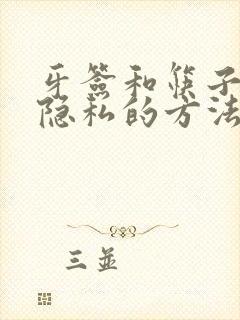 牙签和筷子
隐私的方法
三并